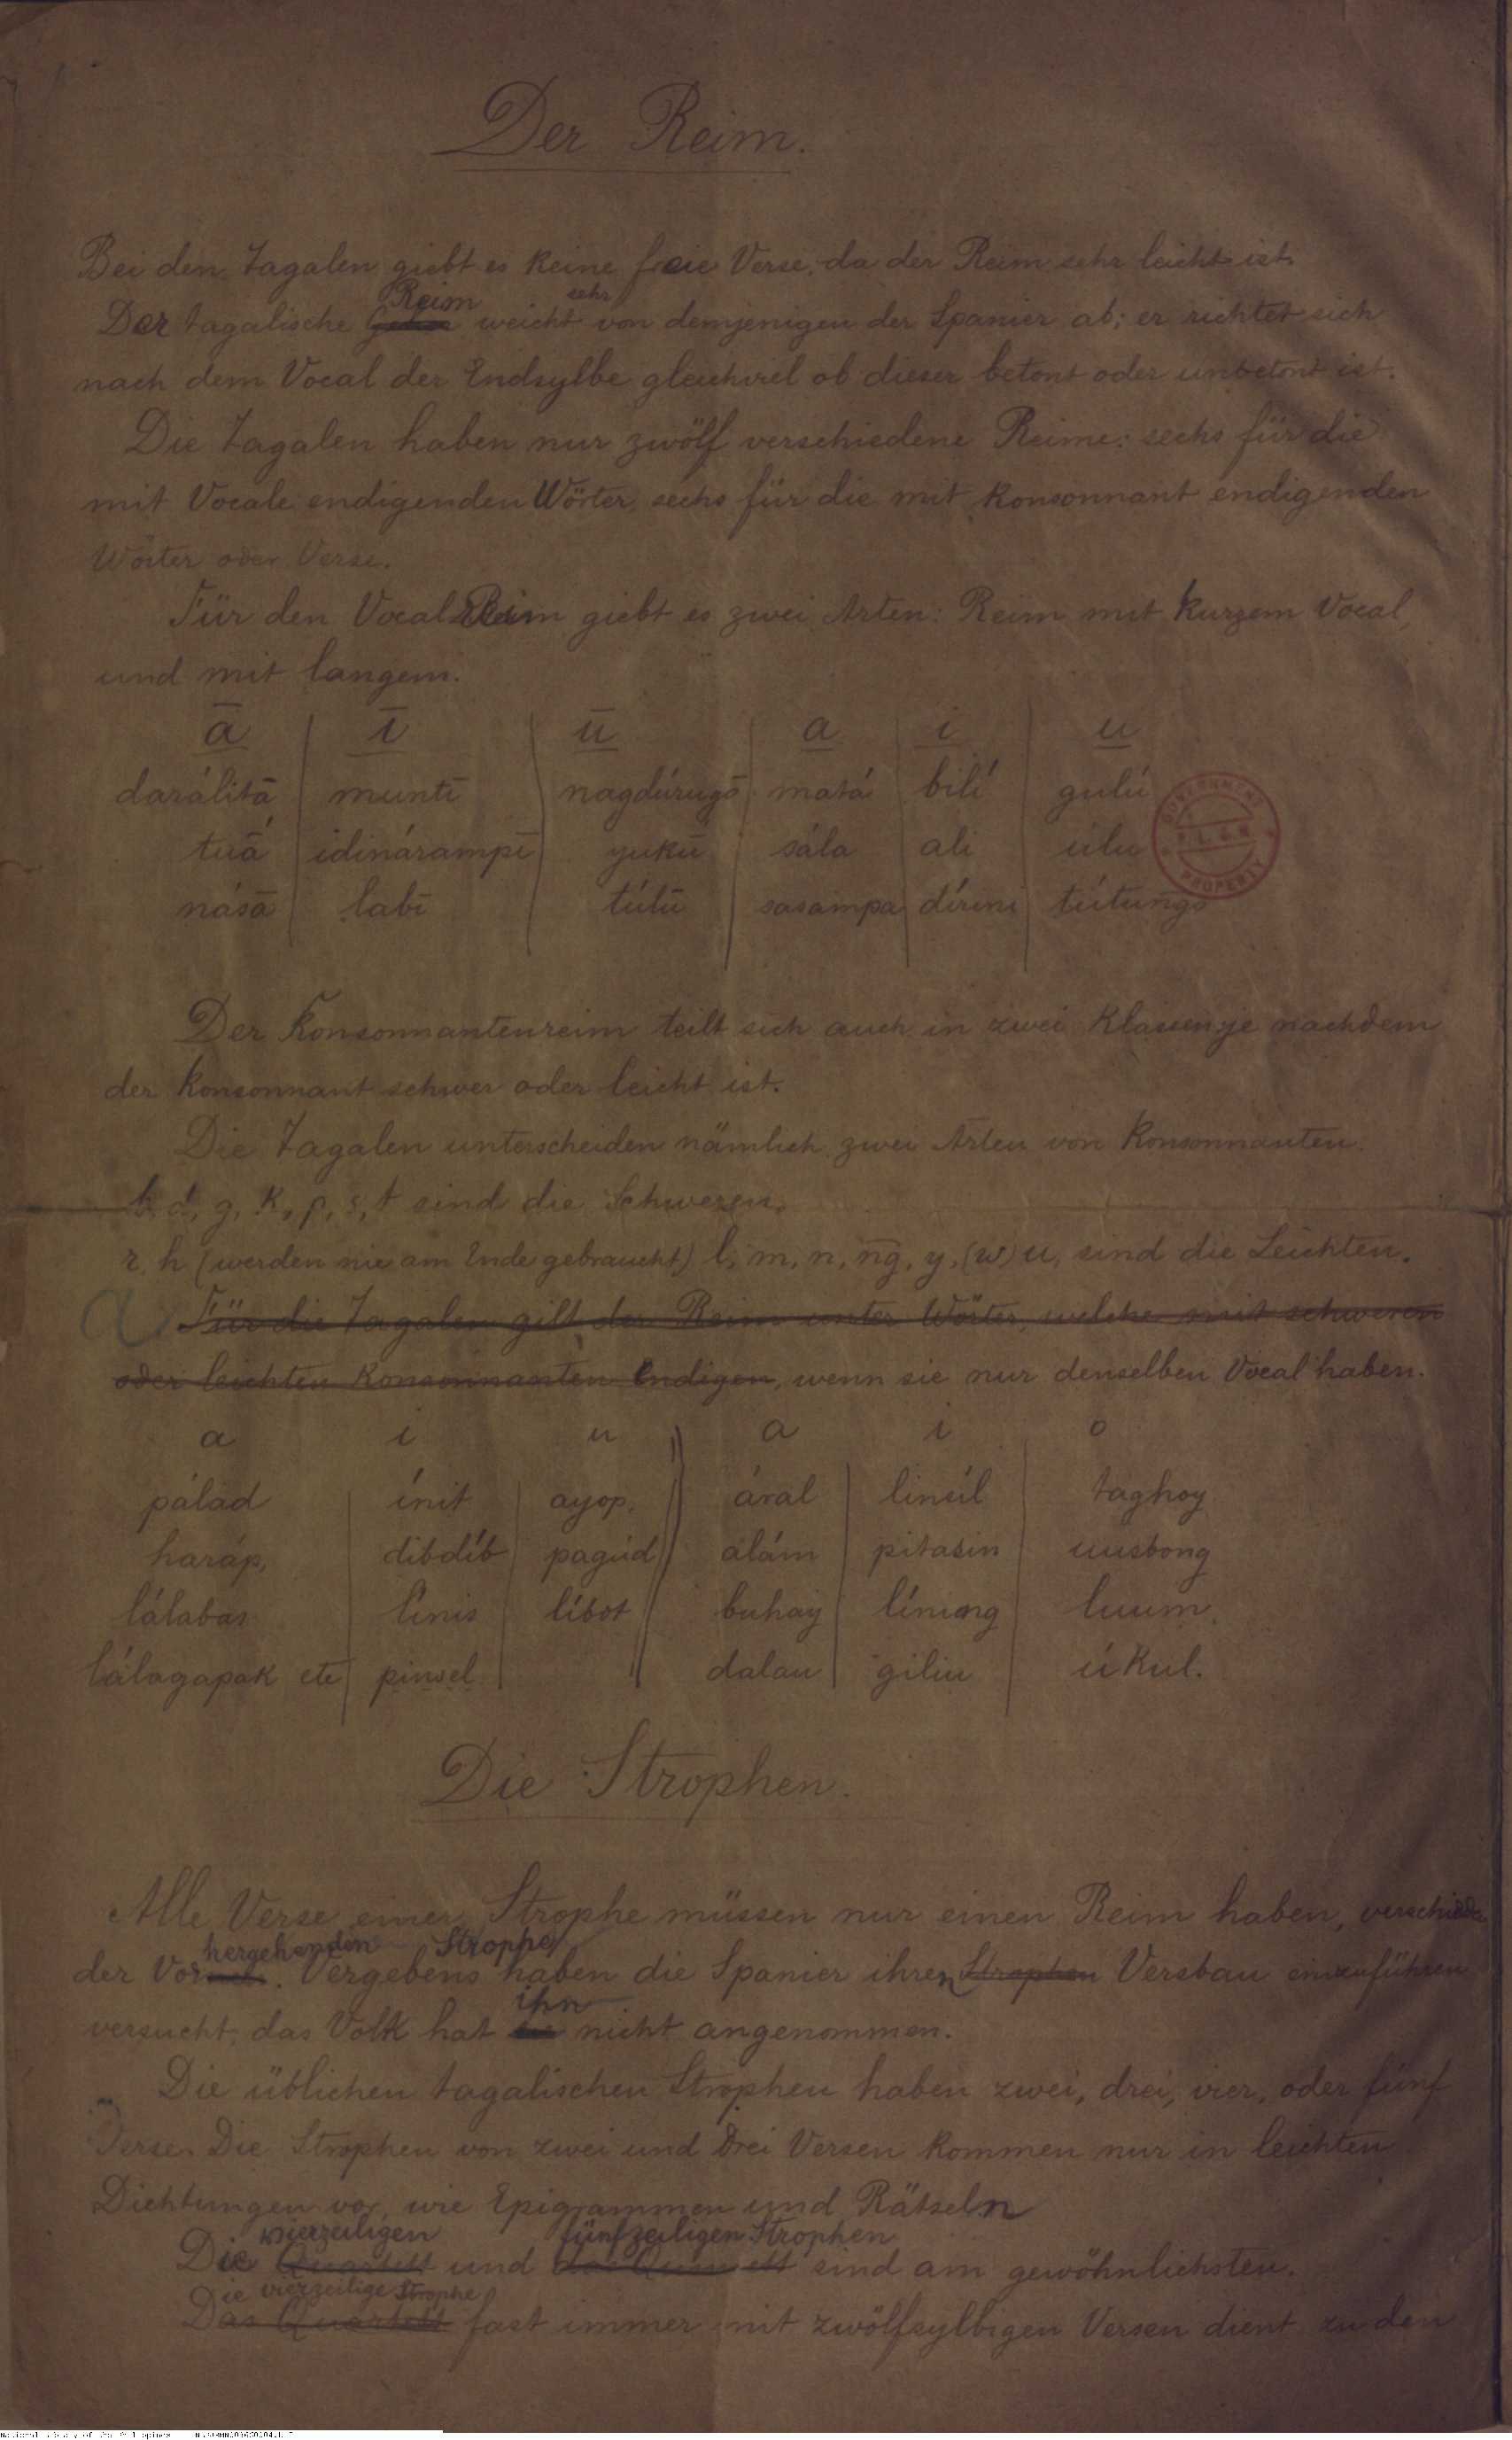 Der Reim.
Bei den Tagalen giebt es keine freie Verse, da der Reim sehr leicht ist.
Reim sehr
Der tagalische weicht von demjenigen der Spanier ab; er richtet sich
nach dem Vocal der Endsylbe gleichviel ob dieser betont oder unbetont ist.
Die Tagalen haben nur zwölf verschiedene Reime: sechs für die
mit Vocale endigenden Wörter, sechs für die mit Konsonnant endigenden
Wörter oder Verse.
Für den Vocal Reim giebt es zwei Arten: Reim mit kurzem Vocal,
und mit langem.
ā ī ū a i u
darálitā muntī nagdúrugō matá bilí gulú
tuā́ idinárampī yukū sála ali úlu
násā labī túlū sasampa dírini tútungo
GOVERNMENT
PROPERTY
Der Konsonnantenreim teilt sich auch in zwei Klassen, je nachdem
der Konsonnant schwer oder leicht ist.
Die Tagalen unterscheiden nämlich zwei Arten von Konsonnanten.
b, d, g, k, p, s, t sind die Schweren,
r, h (werden nie am Ende gebraucht) l, m, n, ng, y, (w) u, sind die Leichten.
Für die Tagalen gilt der Reim unter Wörter, welche mit schweren
oder leichten Konsonnanten endigen, wenn sie nur denselben Vocal haben.
a i u a i o
pálad ínit ayop. áral linúl taghoy
haráp, dibdíb pagúd alám pitasin uusbong
lálabas línis líbot buhay líning luum.
lálagapak etc pinsel dalau giliu úkul.
Die Strophen.
Alle Verse einer Strophe müssen nur einen Reim haben, verschieden
hergehenden Strophe
der Vor. Vergebens haben die Spanier ihren Strophen Versbau einzuführen
ihn
versucht, das Volk hat nicht angenommen.
Die üblichen tagalischen Strophen haben zwei, drei, vier, oder fünf
Verse. Die Strophen von zwei und drei Versen kommen nur in leichten
Dichtungen vor, wie Epigrammen und Rätseln
vierzeiligen fünfzeiligen Strophen
Die Quartett und das Quintett sind am gewöhnlichsten.
Die vierzeilige Strophe
Das Quartett fast immer mit zwölfsylbigen Versen dient zu den